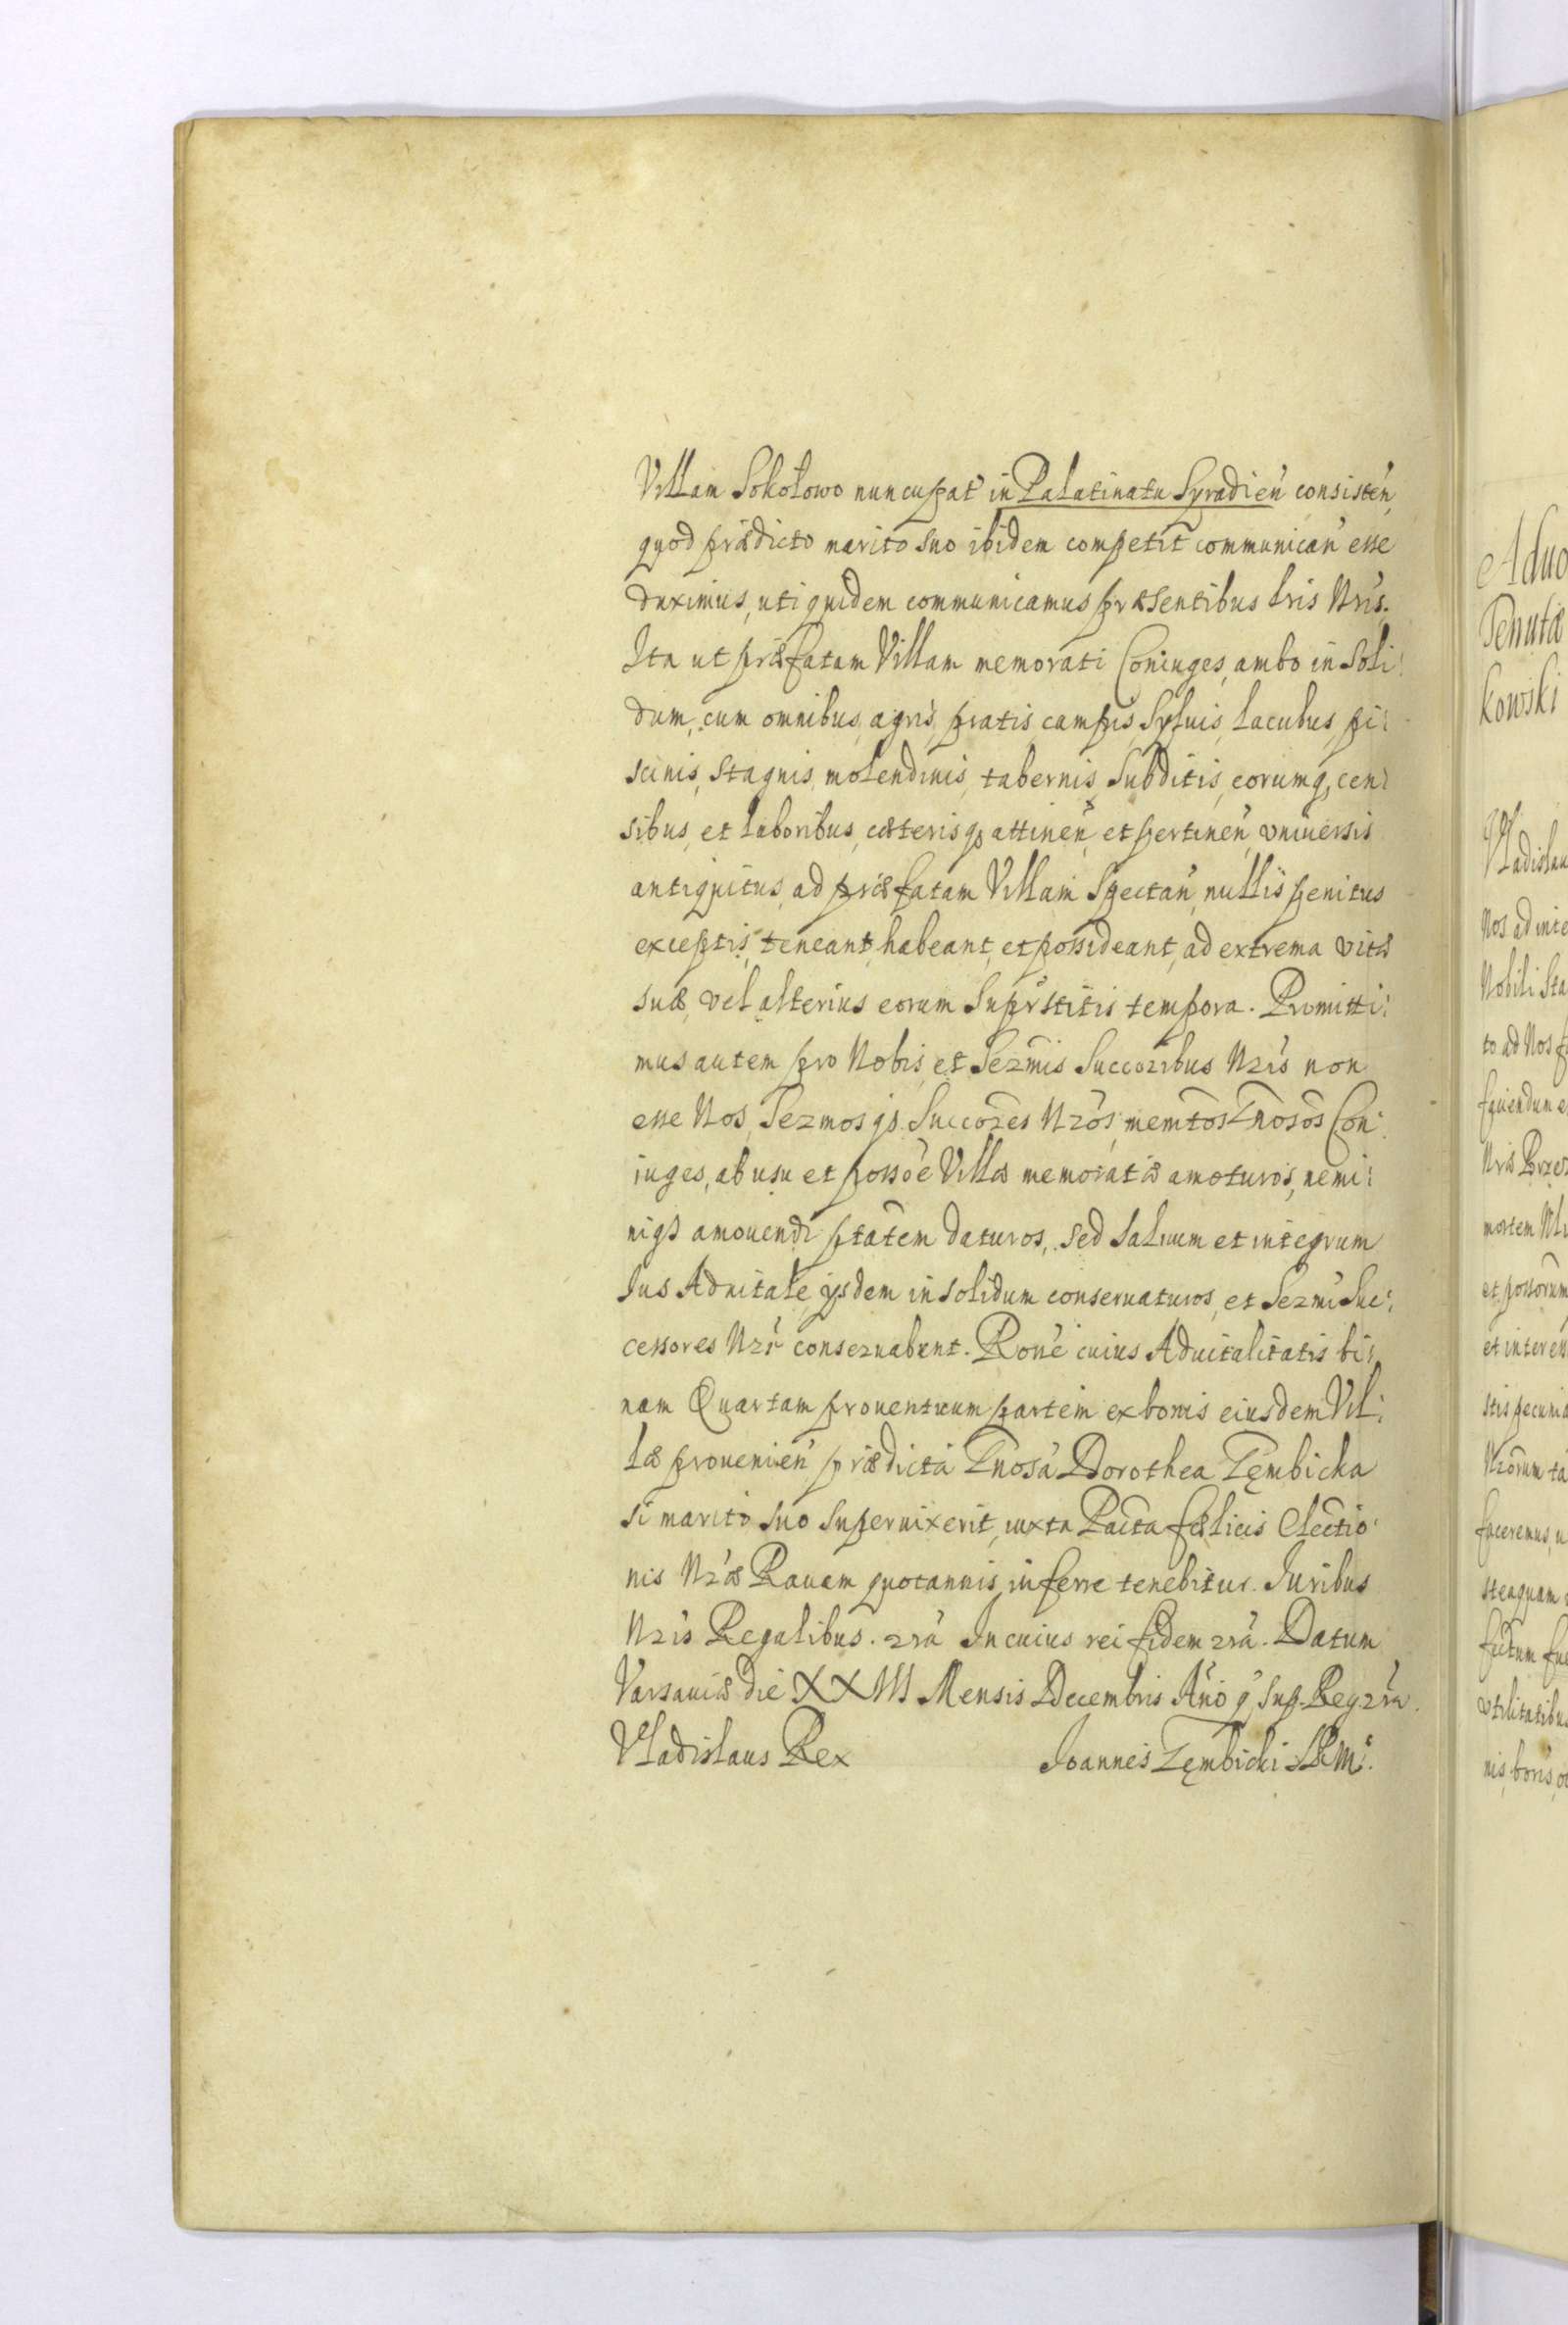 Villam Sokołowo nuncupat' in Palatinatu Syradień consisteń,
quod prædicto marito suo ibidem competit communicań esse
duximus, uti quidem communicamus præsentibus lris Nris.
Ita ut præfatam Villam memorati Coniuges, ambo in soli:
dum, cum omnibus, agris, pratis, campis, Syluis, Lacubus, pi:
scinis, Stagnis, molendinis, tabernis, Subditis, eorumq, cen:
sibus, et laboribus, cæterisq attineń et pertineń, vniuersis
antiquitus, ad præfatam Villam Spectań, nullis penitus
exceptis, teneant, habeant, et possideant, ad extrema vitæ
suæ, vel alterius eorum Suprstitis tempora. Promitti:
mus autem pro Nobis, et Sermis Succoribus Nris non
esse Nos, Sermosq. Succores Nros, memtos Gnosos Con:
iuges, ab usu et possõe Villæ memoratæ amoturos, nemi:
niq amouendi ptatem daturos, sed Saluum et integrum
Ius Aduitale ysdem in solidum conseruaturos, et Sermi Suc:
cessores Nri conseruabunt. Rone cuius Aduitalitatis bi:
nam Quartam prouentuum partem ex bonis eiusdem Vil:
læ prouenień prædicta Gnosa Dorothea Zęmbicka
si marito suo Superuixerit, iuxta Pacta fælicis Electio:
nis Nræ Rauam quotannis inferre tenebitur. Iuribus
Nris Regalibus. rra In cuius rei fidem rra. Datum
Varsauiæ die XXIII Mensis Decembris Ano q Sup. Reg rra.
Vladislaus Rex Joannes Zęmbicki SRM.
Aduo
Tenutæ
kowski
Vladislau
Nos ad inte
Nobili Sta
to ad Nos
quendum e
Nris Brze
mortem
et possorum
et interess
stis pecunia
Nrorum ta
faceremus, u
vtilitatibus
nis, boris, o